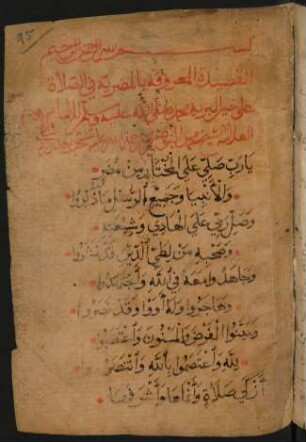 95
بسم الله الرحمن الرحيم
القصيدة المعروفة بالمضرية في الصلاة
على خير البرية صلى الله عليه وسلم
العلامة
يا رب صلي على المختار من مضر
والأنبيا وجميع الرسل ما ذكروا
وصل ربي على الهادي وشيعته
وصحبه من لطي الدين قد نشروا
وجاهدوا معه في الله واجتهدوا
وهاجروا وله آووا وقد نصروا
وبينوا الفرض والمسنون واعتصبوا
لله واعتصموا بالله وانتصروا
أزكى صلاة وأنماها وأشرفها